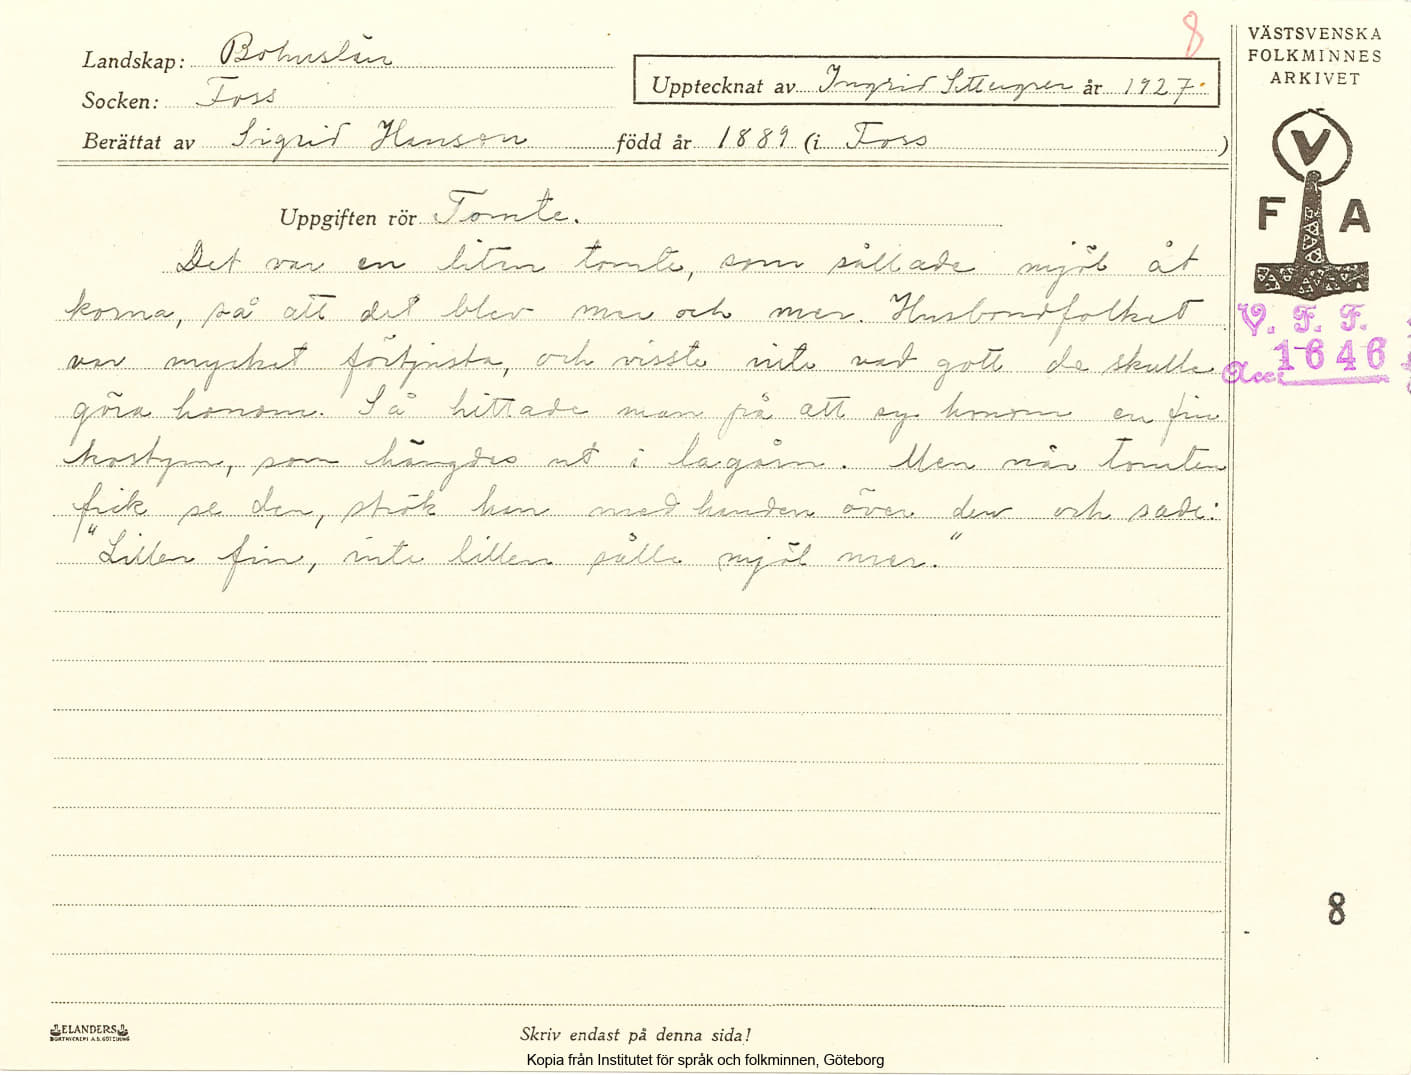 8
Landskap: Bohuslän
Socken: Foss
Upptecknat av Ingrid år 1927.
Berättat av Sigrid Hanson född år 1889 (i Foss )
VÄSTSVENSKA
FOLKMINNES
ARKIVET
V
F A
V. F. F.
Acc: 1646
Uppgiften rör Tomte.
Det var en liten tomte, som sållade mjöl åt
korna, så att det blev mer och mer. Husbondfolket
var mycket förtjusta, och visste inte vad gott de skulle
göra honom. Så hittade man på att sy honom en fin
kostym, som hängdes ut i lagårn. Men när tomten
fick se den, strök han med handen över den och sade:
"Lillen fin, inte lillen sålla mjöl mer."
8
ELANDERS
BOKTRYCKERI A.B. GÖTEBORG
Skriv endast på denna sida!
Kopia från Institutet för språk och folkminnen, Göteborg